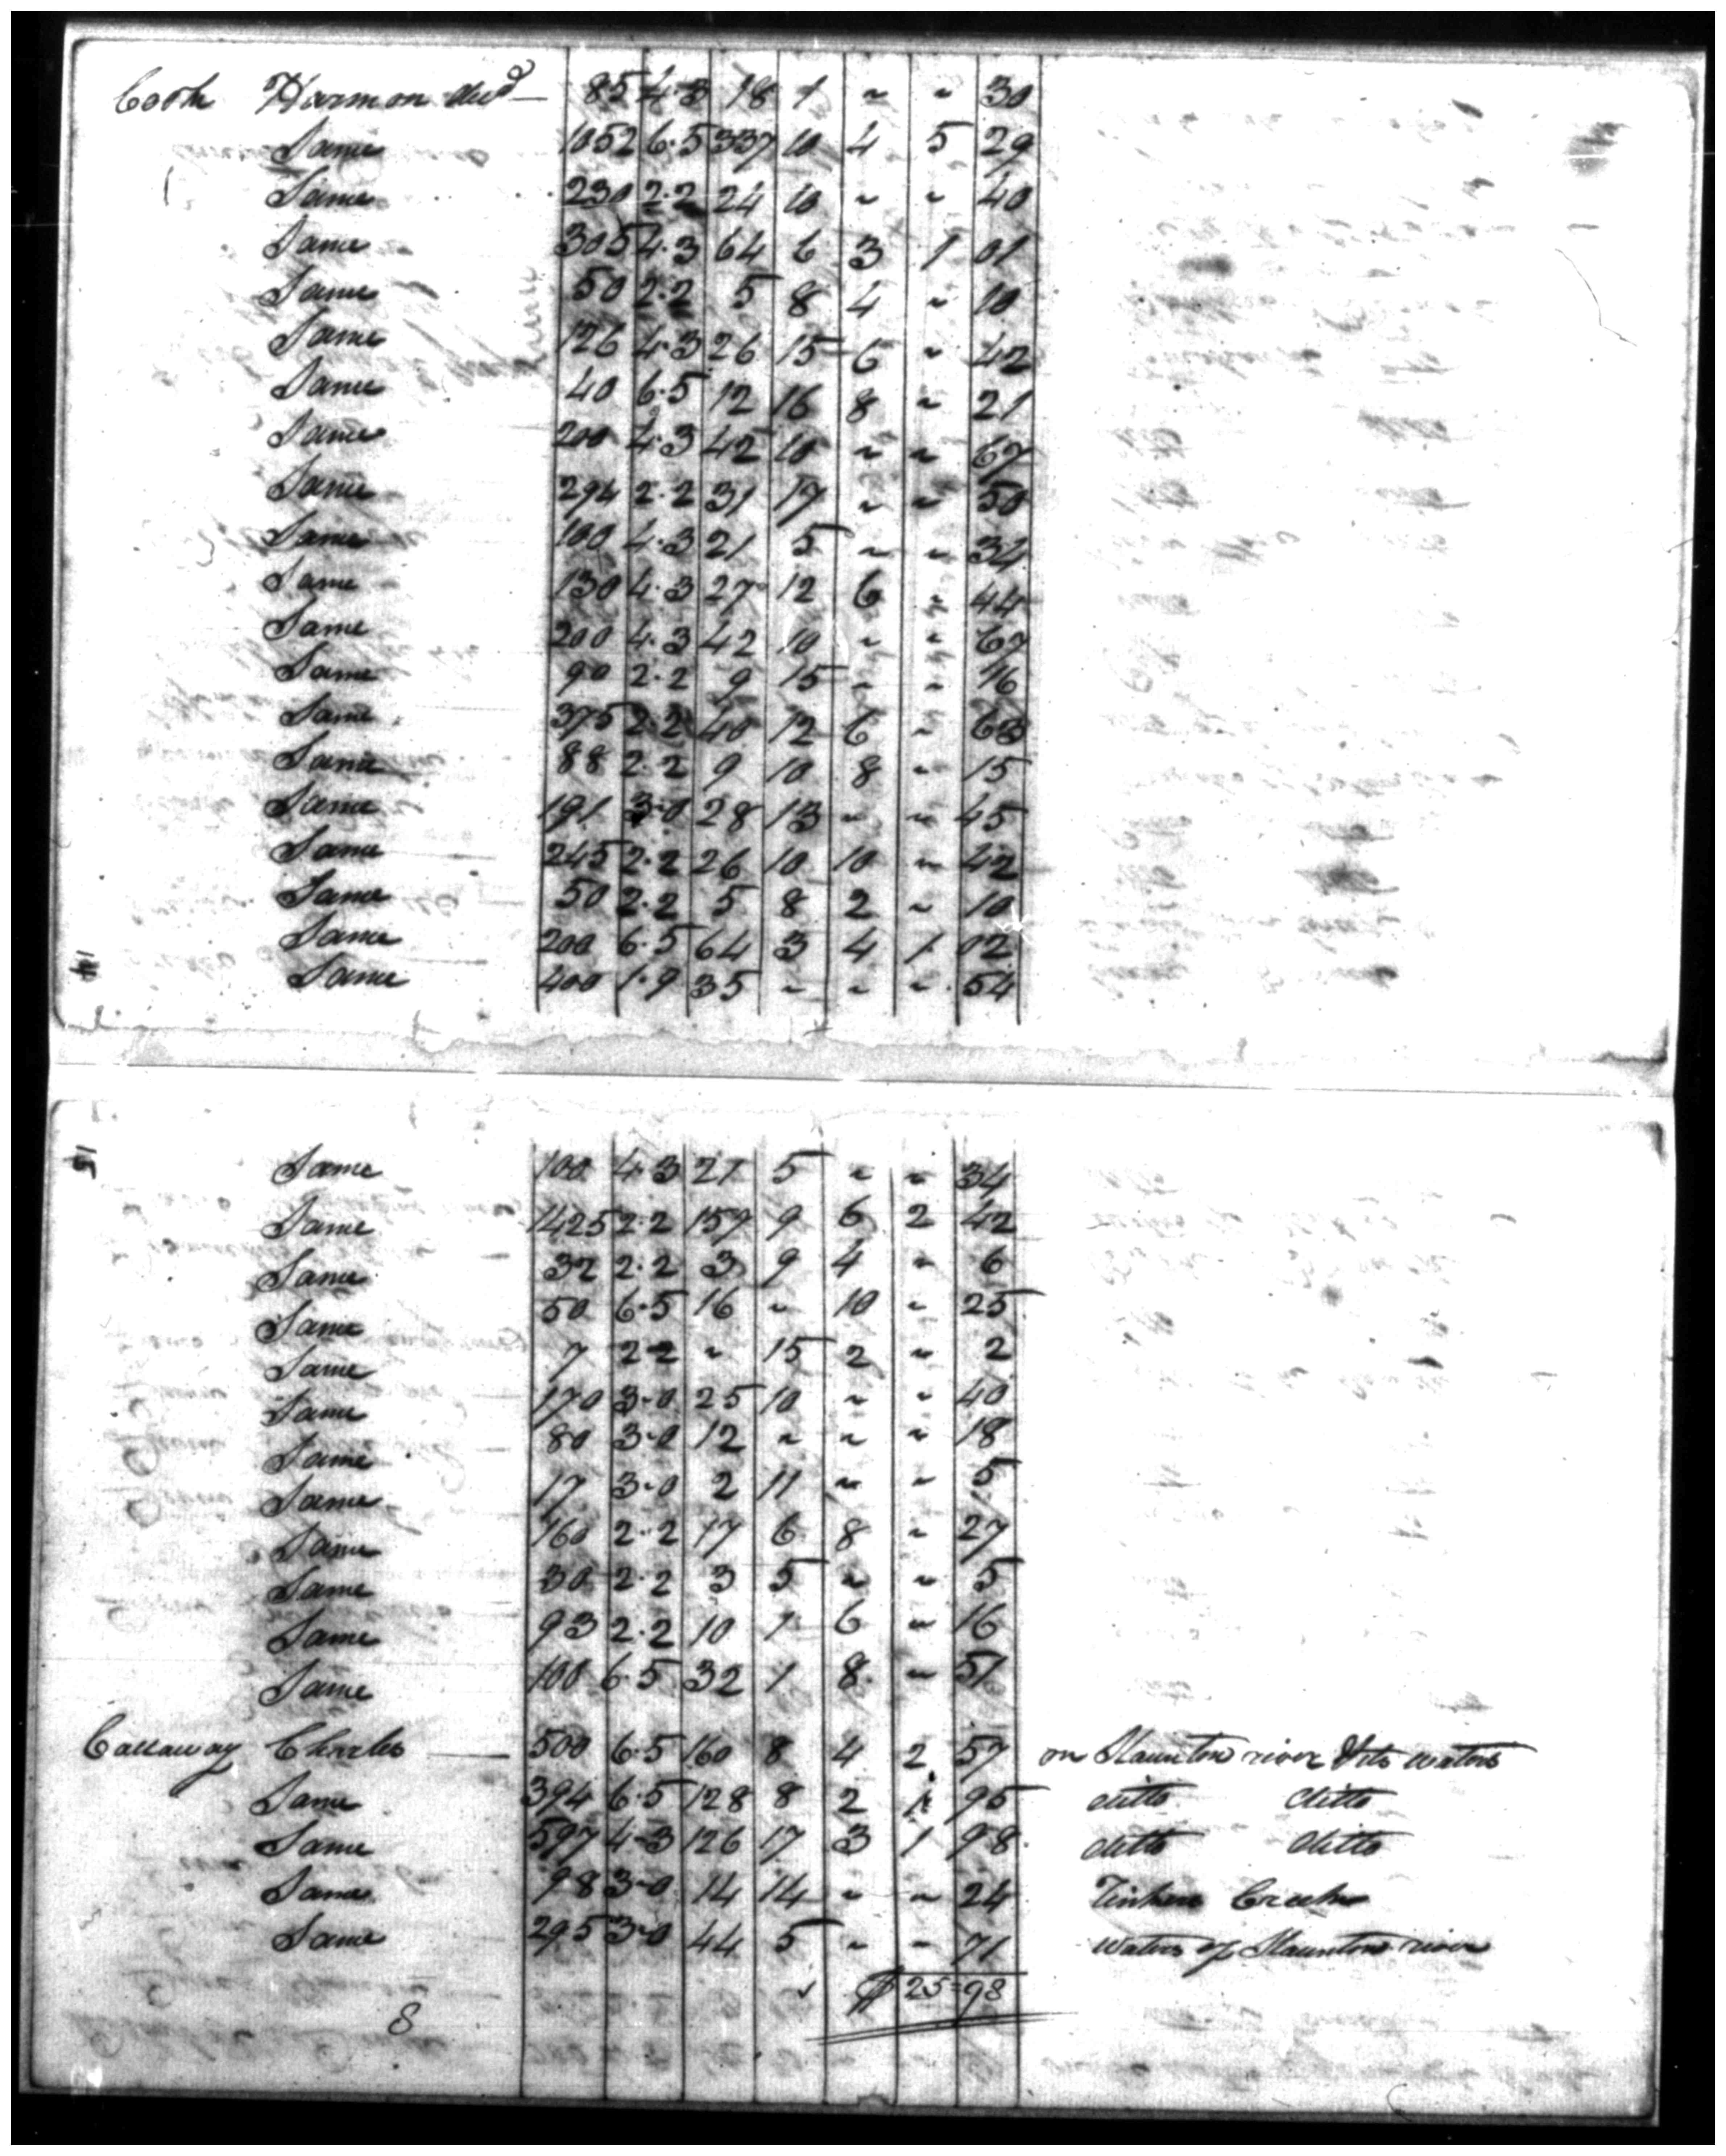 Cook Harmon decd — 85 4.3 18 1 ~ ~ 30
Same 1052 6.5 337 10 4 5 29
Same 230 2.2 24 10 ~ ~ 40
Same 305 4.3 64 6 3 1 01
Same 50 2.2 5 8 4 ~ 10
Same 126 4.3 26 15 6 ~ 42
Same 40 6.5 12 16 8 ~ 21
Same 200 4.3 42 10 ~ ~ 67
Same 294 2.2 31 17 ~ ~ 50
Same 100 4.3 21 5 ~ ~ 34
Same 130 4.3 27 12 6 ~ 44
Same 200 4.3 42 10 ~ ~ 67
Same 90 2.2 9 15 ~ ~ 16
Same 375 2.2 40 12 6 ~ 63
Same 88 2.2 9 10 8 ~ 15
Same 191 3-0 28 13 ~ ~ 45
Same 245 2.2 26 10 10 ~ 42
Same 50 2.2 5 8 2 ~ 10
Same 200 6.5 64 3 4 1 02
Same 400 1.9 35 ~ ~ ~ 54
14
15
Same 100 4.3 21 5 ~ ~ 34
Same 1425 2.2 157 9 6 2 42
Same 32 2.2 3 9 4 ~ 6
Same 50 6.5 16 ~ 10 ~ 25
Same 7 2 2 ~ 15 2 ~ 2
Same 170 3-0 25 10 ~ ~ 40
Same 80 3-0 12 ~ ~ ~ 18
Same 17 3-0 2 11 ~ ~ 5
Same 160 2.2 17 6 8 ~ 27
Same 30 2.2 3 5 ~ ~ 5
Same 93 2.2 10 1 6 ~ 16
Same 100 6.5 32 1 8 ~ 51
Callaway Charles — 500 6.5 160 8 4 2 57 on Staunton river & its waters
Same 394 6.5 128 8 2 1 95 ditto ditto
Same 597 4-3 126 17 3 1 98 ditto ditto
Same 98 3-0 14 14 ~ ~ 24 Tinker Creek
Same 295 3-0 44 5 ~ ~ 71 waters of Staunton river
$ 25=98
8